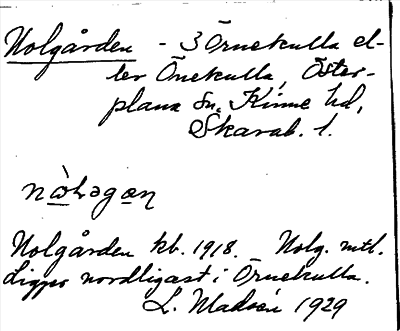 Nolgården - 3 Örnekulla el-
ler Önekulla, Öster-
plana sn. Kinne hd,
Skarab. l.
Nolgården kb. 1918. Nolg. mtl.
Ligger nordligast i Örnekulla.
L. Madsén 1929